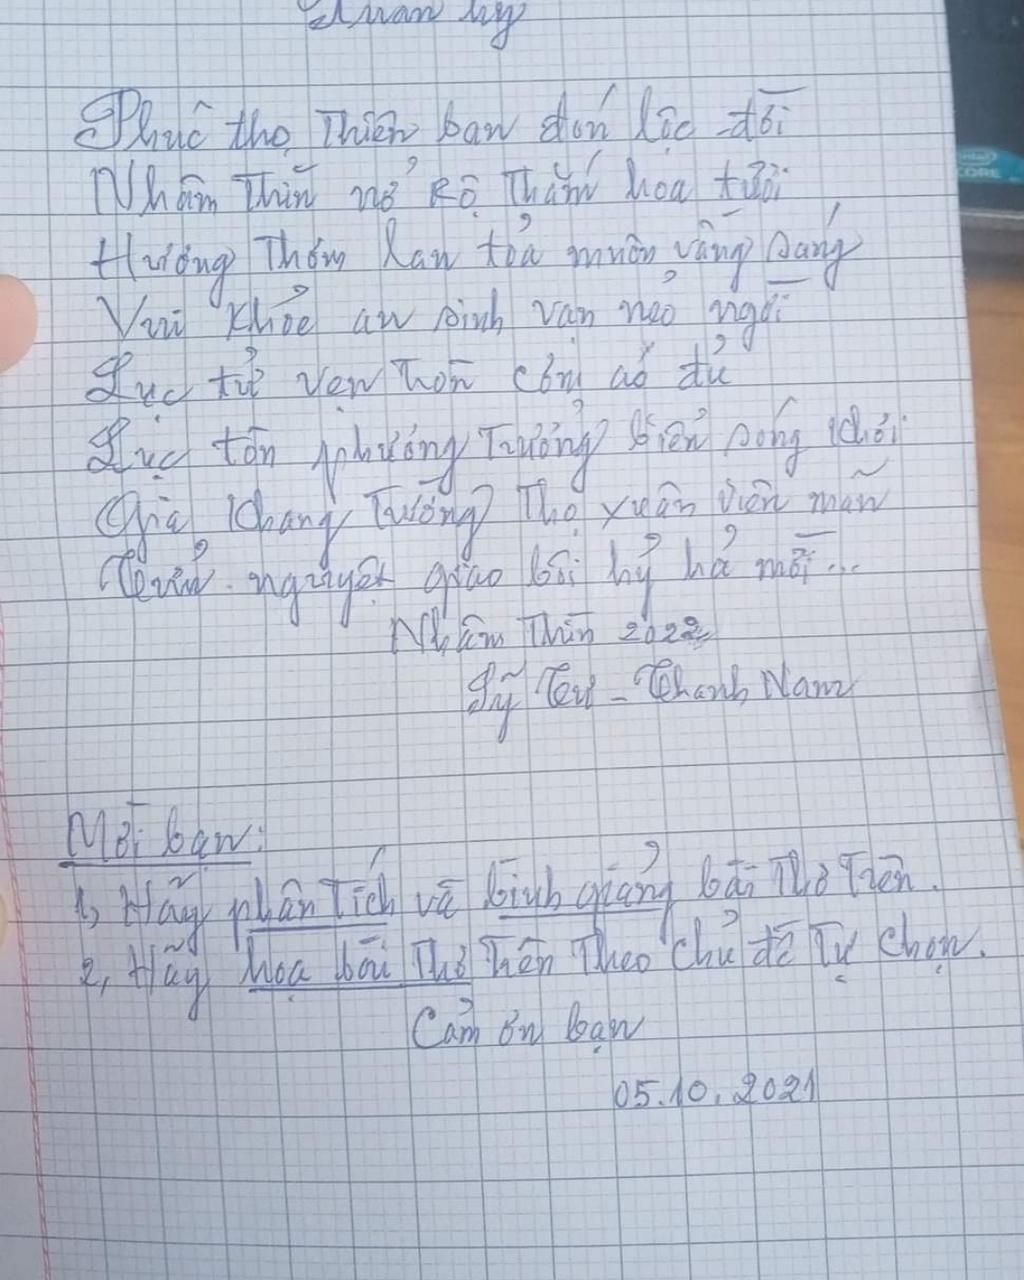 Xuân hỷ
Phúc thọ Thiên ban đón lộc đời
Nhâm Thìn nở Rộ Thắm hoa tươi
Hương Thơm lan tỏa muôn vầng sáng
Vui khỏe an sinh vạn nẻo ngời
Lục tử vẹn tròn cơm áo đủ
Lục tôn phương trưởng biển sóng khơi
Gia khang Tường Thọ xuân viên mãn
nguyệt giao bôi hỷ hả mời...
Nhâm Thìn 2022
Sỹ Tư - Thanh Nam
Mời bạn:
1, Hãy phân Tích và bình giảng bài Thơ Trên.
2, Hãy họa bài Thơ Trên Theo chủ đề Tự Chọn.
Cảm ơn bạn
05.10.2021
CORE